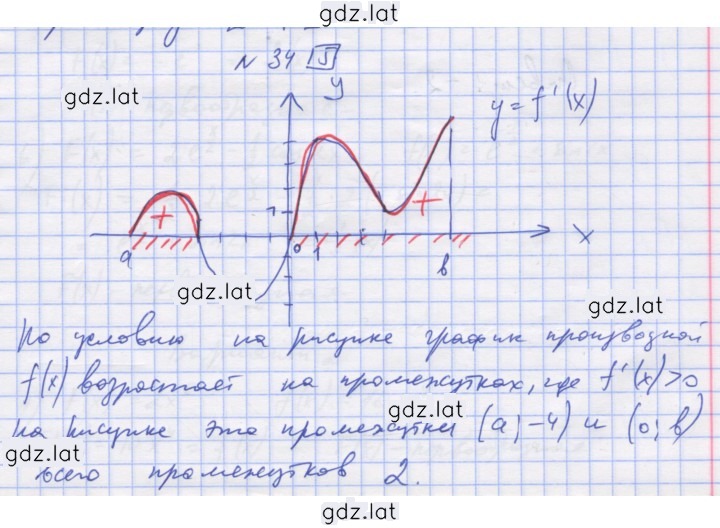 gdz.lat
N 34 5
y
y = f'(x)
gdz.lat
+
+
1
a
0
1
b
x
gdz.lat
gdz.lat
По условию на рисунке график производной
f(x) возрастает на промежутках, где f'(x)>0
gdz.lat
на рисунке это промежутки (a; -4) и (0; b)
gdz.lat
всего промежутков 2.
gdz.lat